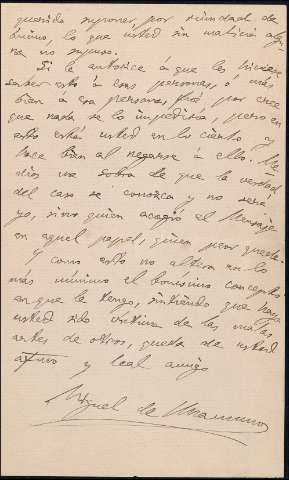 querido suponer por ruindad de
ánimo, lo que usted sin malicia algu-
na no supuso.
Si le autoricé á que les hiciera
saber esto á esas personas, ó más
bien á esa persona, fué por creer
que nada se lo impediría, pero en
esto está usted en lo cierto y
hace bien al negarse á ello. Me
dios sobra de que la verdad
del caso se conozca y no será
yo, sino quien acogió el Mensaje
en aquel papel, quien peor quede.
Y como esto no altera en lo
más mínimo el bonísimo concepto
en que le tengo, sintiendo que haya
usted sido víctima de las malas
artes de otros, queda de usted
afmo y leal amigo
Miguel de Unamuno